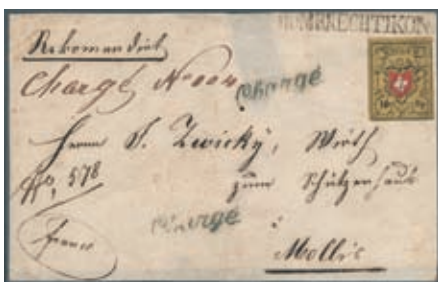 HOMBRECHTIKON
Rekomandirt
Chargé No 004
Chargé
Herrn J. Zwicky, Wirth
578
zum Schützenhaus
Chargé
franco
Mollis